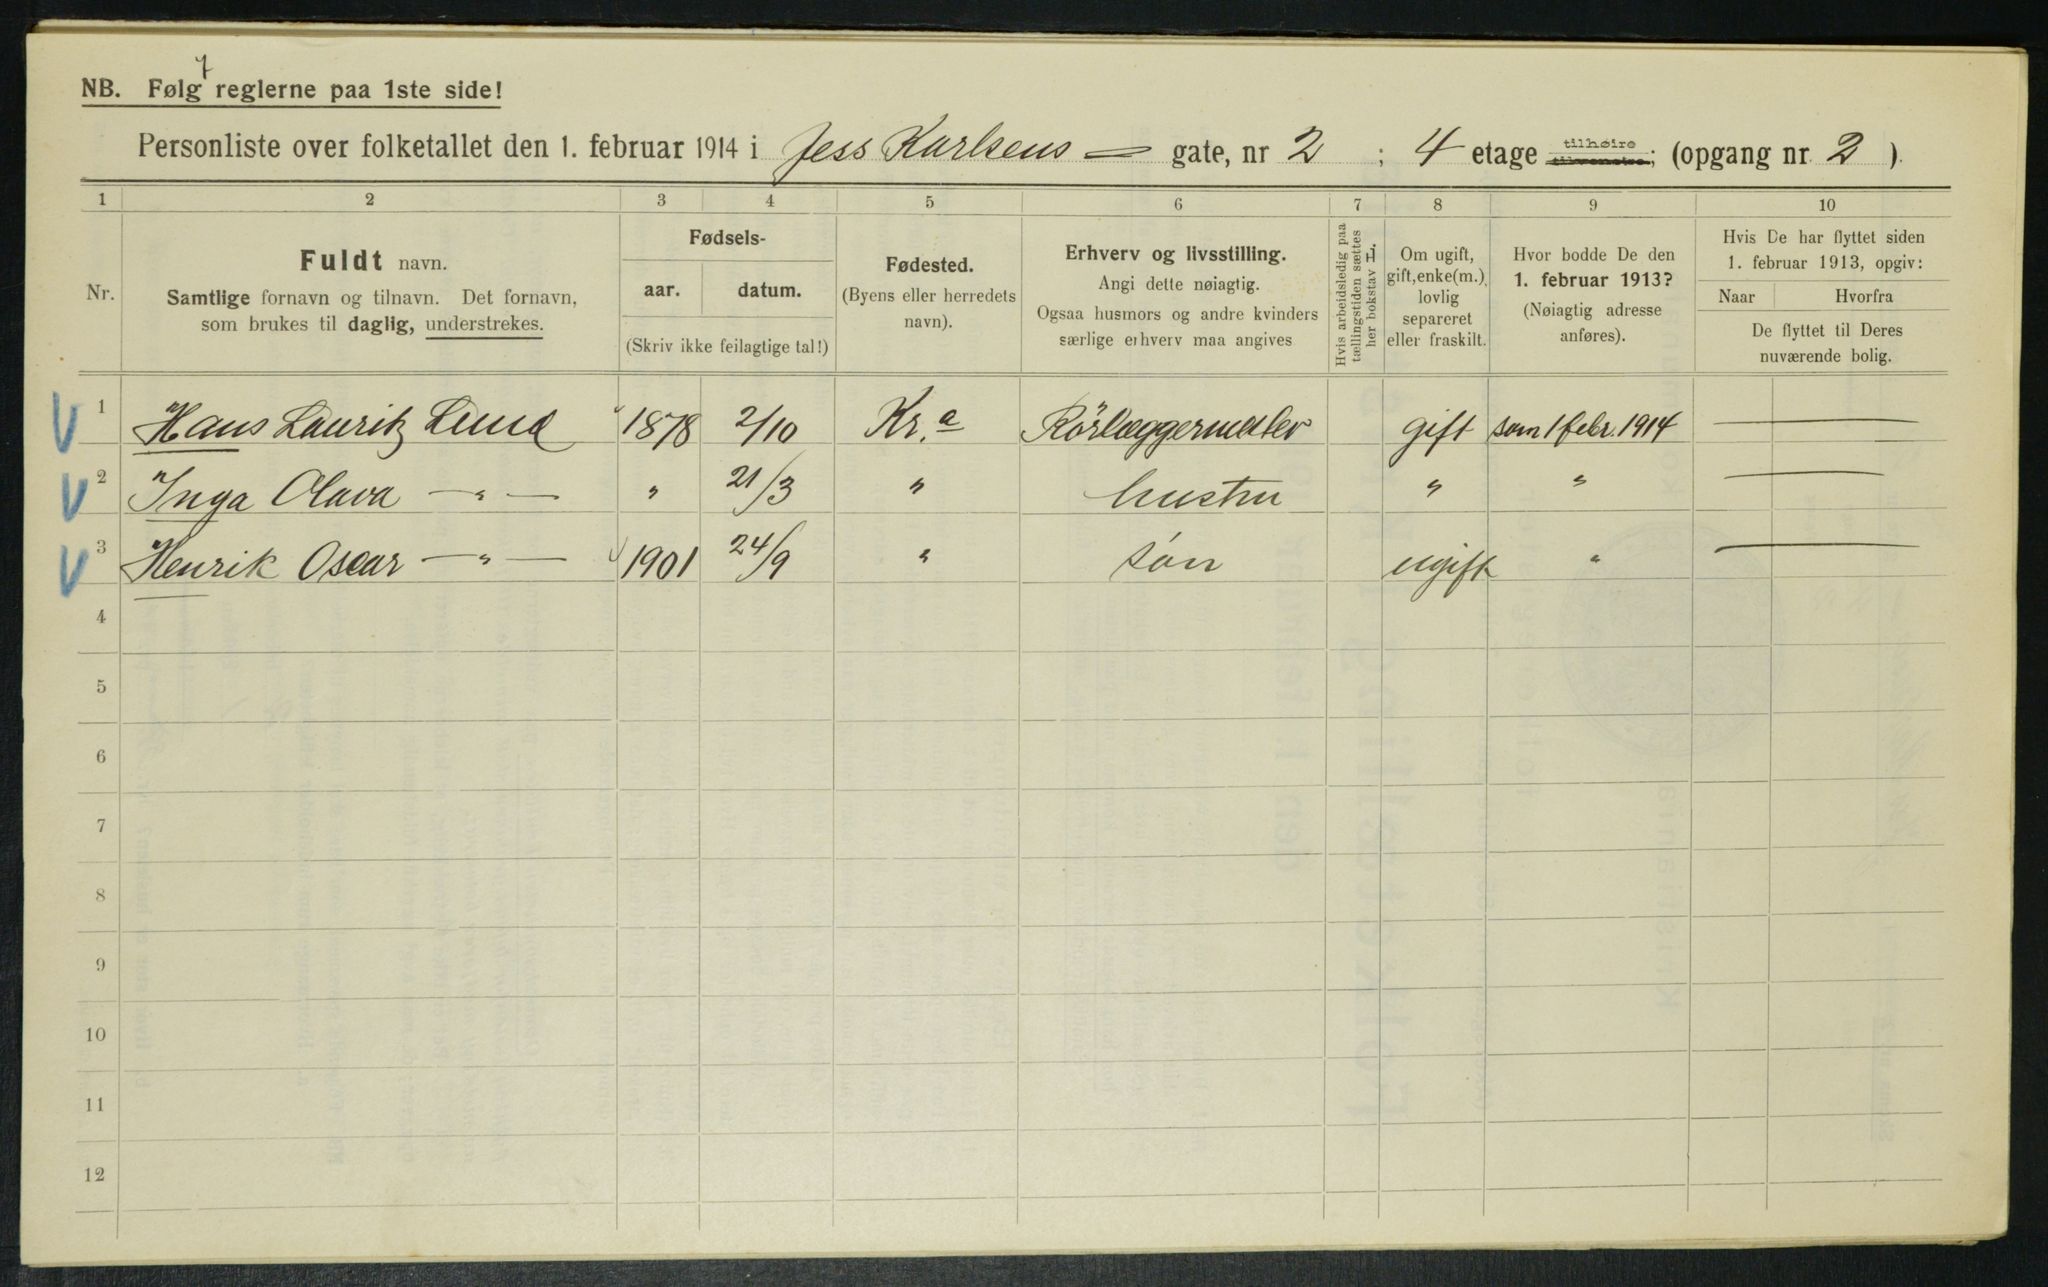 7
NB. Følg reglerne paa 1ste side!
Personliste over folketallet den 1. februar 1914 i Jess Karlsens — gate, nr 2 ; 4 etage tilhøire tilvenstre; (opgang nr. 2 ).
1 2 3 4 5 6 7 8 9 10
Nr.
Fuldt navn.
Samtlige fornavn og tilnavn. Det fornavn,
som brukes til daglig, understrekes.
Fødsels-
aar. datum.
(Skriv ikke feilagtige tal!)
Fødested.
(Byens eller herredets
navn).
Erhverv og livsstilling.
Angi dette nøiagtig.
Ogsaa husmors og andre kvinders
særlige erhverv maa angives
Hvis arbeidsledig paa
tællingstiden sættes
her bokstav L.
Om ugift,
gift, enke(m.),
lovlig
separeret
eller fraskilt.
Hvor bodde De den
1. februar 1913?
(Nøiagtig adresse
anføres).
Hvis De har flyttet siden
1. februar 1913, opgiv:
Naar Hvorfra
De flyttet til Deres
nuværende bolig.
1 Hans Lauritz Lund 1878 2/10 Kr.a Rörlæggermester gift som 1 febr. 1914 —
2 Inga Olava — " — " 21/3 " hustru " " —
3 Henrik Oscar — " — 1901 24/9 " søn ugift " —
4
5
6
7
8
9
10
11
12